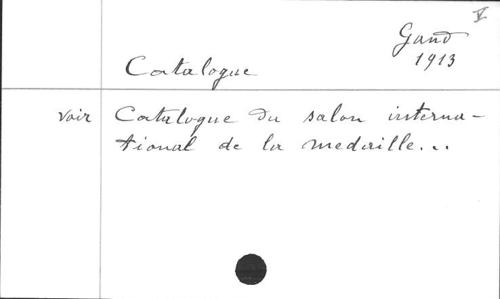 V
Gand
1913
Catalogue
voir Catalogue du salon interna-
tional de la medaille...